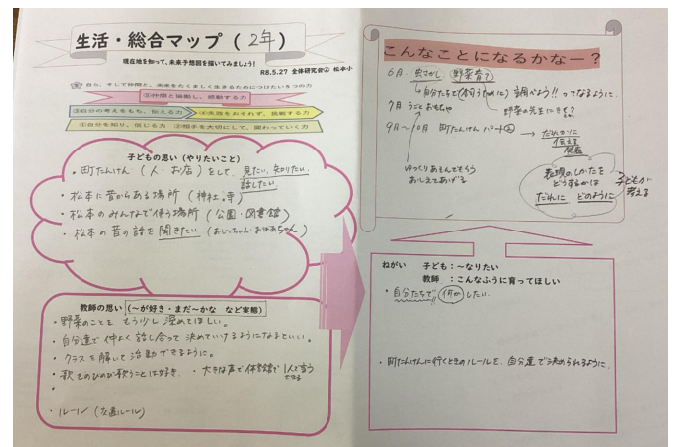 生活・総合マップ（2年）
現在地を知って、未来予想図を描いてみよう！
R8.5.27 全体研究会④ 松本小
自分、そして仲間と、未来をたくましく生きるためにつけたい5つの力
⑤仲間と協働し、感動する力
③自分の考えをもち、伝える力
④失敗をおそれず、挑戦する力
①自分を知り、信じる力 ②相手を大切にして、関わっていく力
子どもの思い（やりたいこと）
・町たんけん（人・お店）をして、見たい、知りたい、
話したい
・松本に昔からある場所（神社、寺）
・松本のみんなで使う場所（公園・図書館）
・松本の昔の話を聞きたい（おじーちゃん・おばあちゃん）
教師の思い（～が好き・まだ～かな など実態）
・野菜のことをもう少し深めてほしい。
・自分達で仲よく話し合って決めていけるようになるといい。
・クラスを解いて活動できるように。
・歌そのものが歌うことは好き。・大きな声で体育館で1人で言う
・ルール（交通ルール）
こんなことになるかなー？
6月 虫さがし 野菜育て
自分たちで 調べよう!! ってなるように。
野菜の先生にきく？
7月 うごくおもちゃ
9月～10月 町たんけん パート②
→ だれかに
伝える
発表
ゆっくりあそんでもらう
おしえてあげる
表現のしかたを
どうするかは
だれに どのように
子どもが
考える
ねがい 子ども：～なりたい
教師：こんなふうに育ってほしい
・自分たちで!! 何かしたい。
・町たんけんに行くときのルールを、自分達で決められるように。